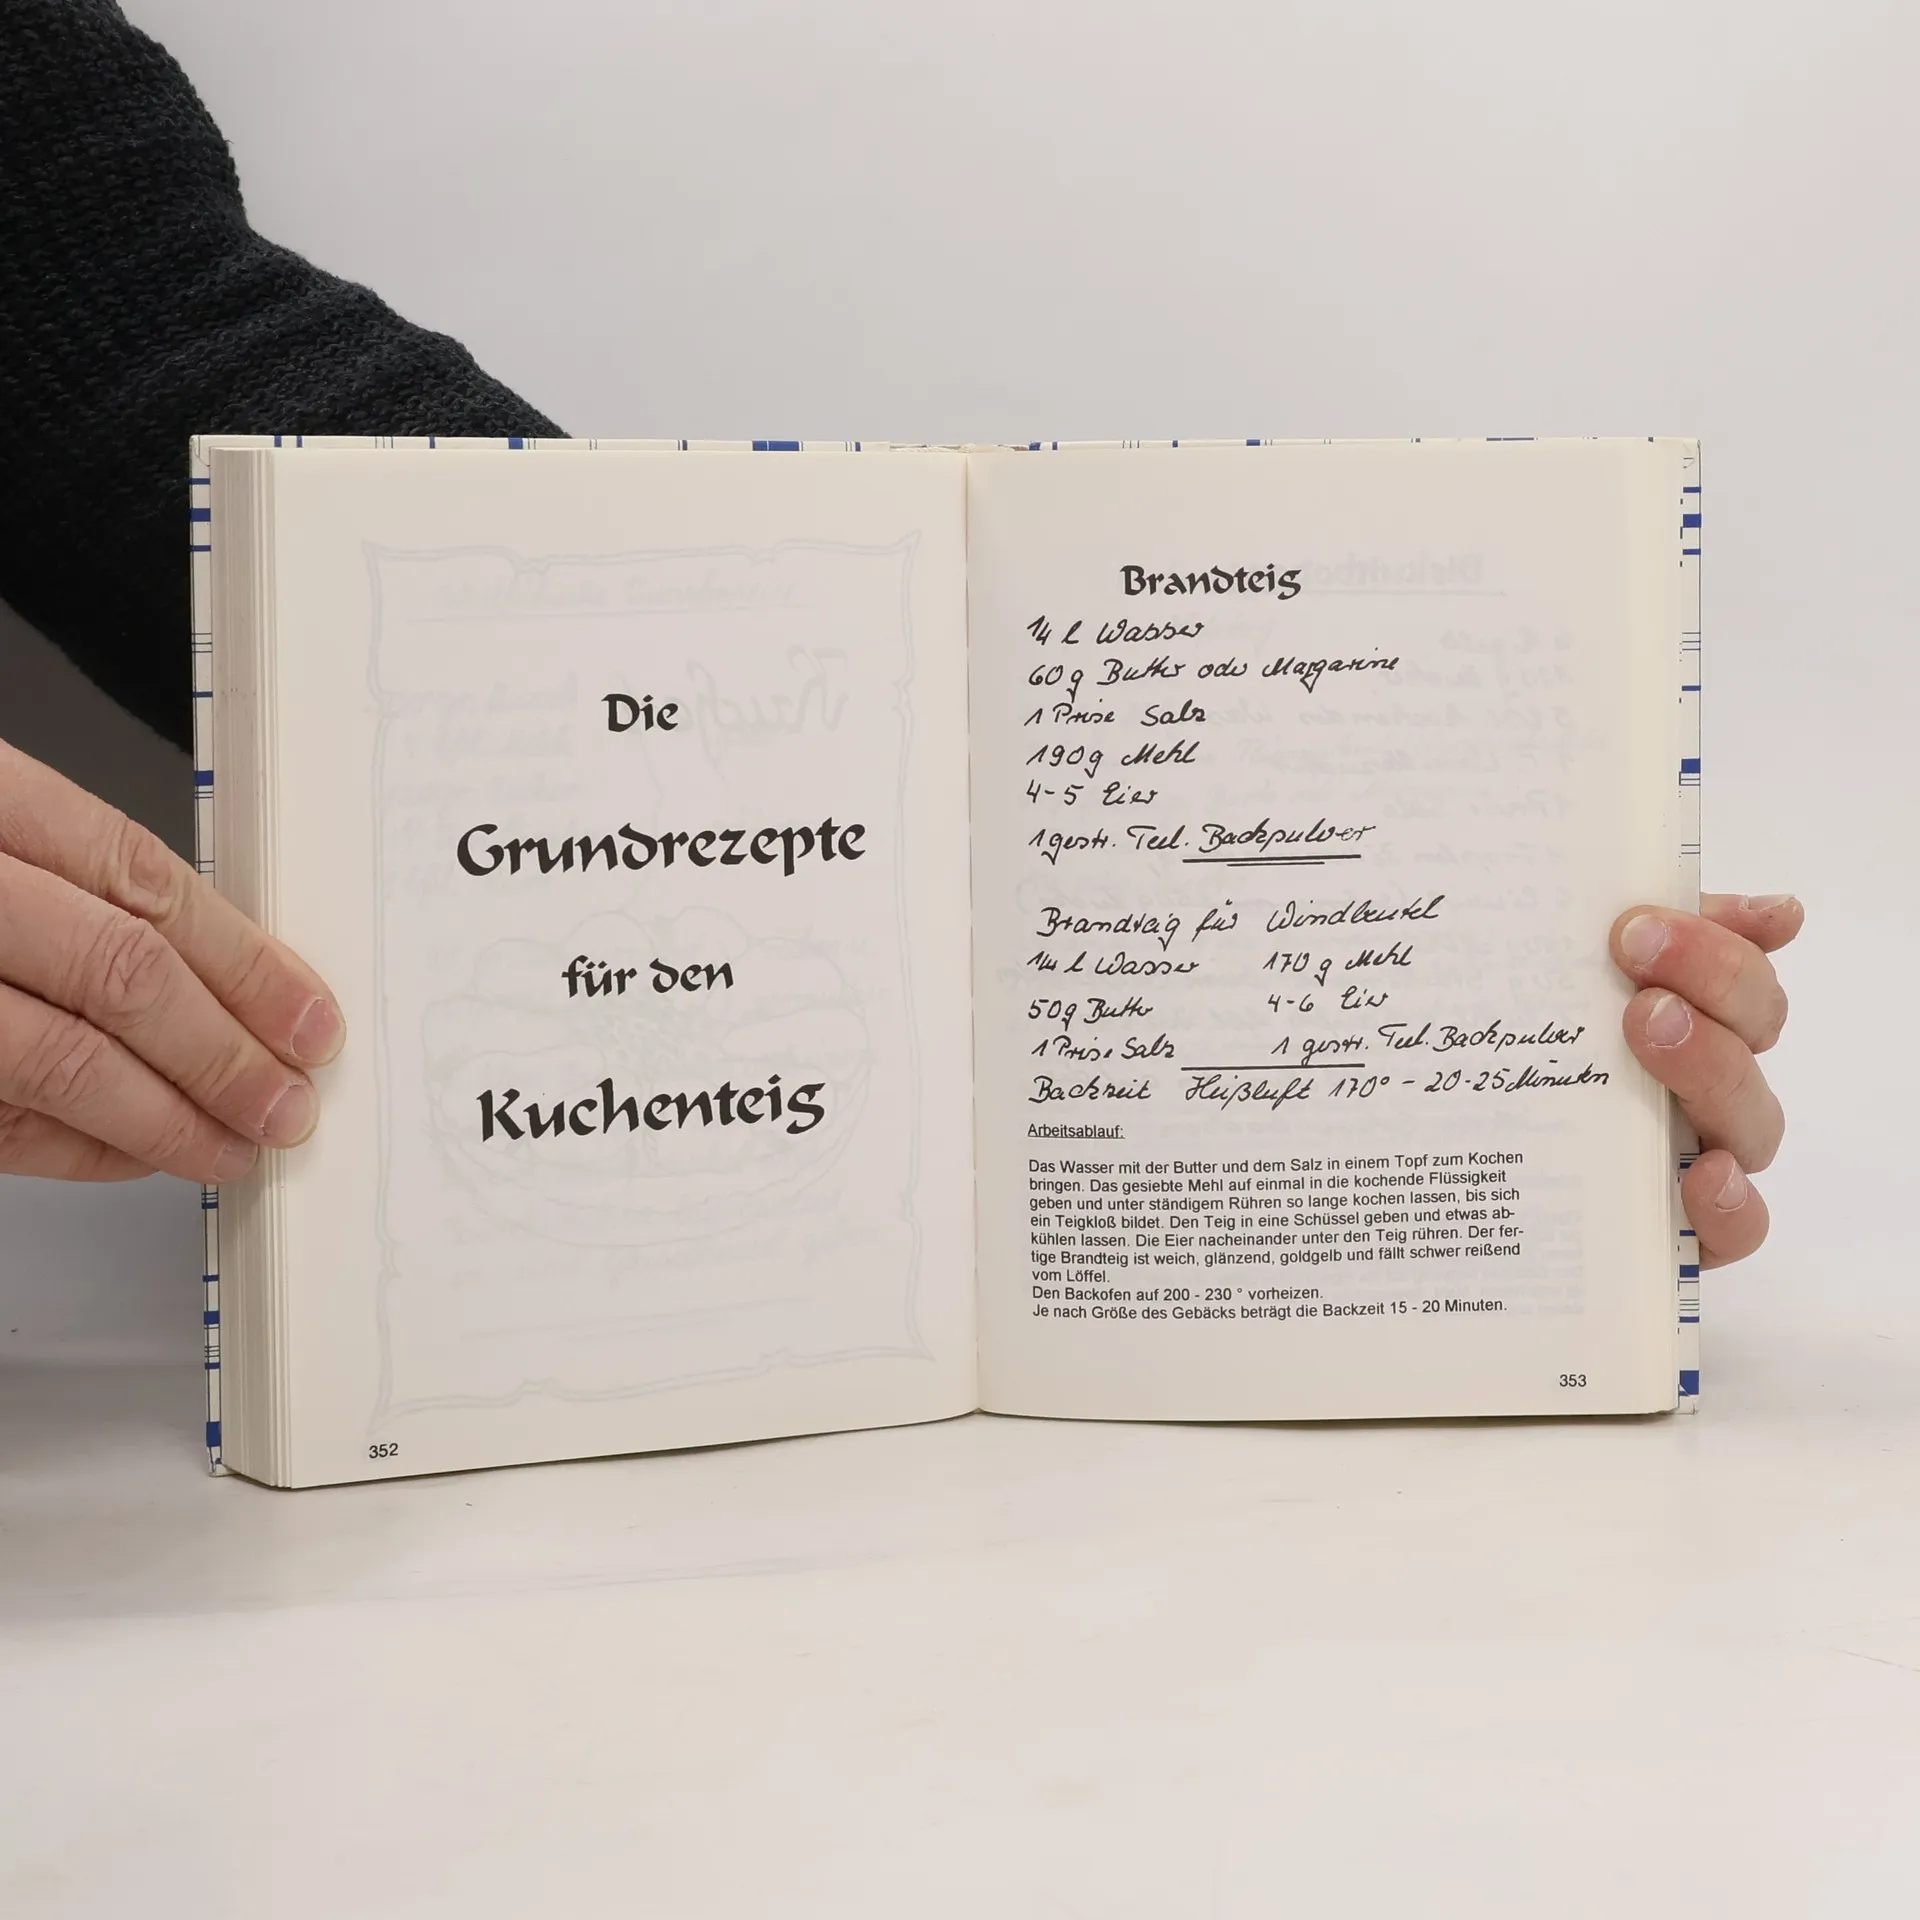 Die
Grundrezepte
für den
Kuchenteig
352
Brandteig
1/4 l Wasser
60g Butter oder Margarine
1 Prise Salz
190g Mehl
4-5 Eier
1 gestr. Teel. Backpulver
Brandteig für Windbeutel
1/4 l Wasser 170 g Mehl
50g Butter 4-6 Eier
1 Prise Salz 1 gestr. Teel. Backpulver
Backzeit Heißluft 170° - 20-25 Minuten
Arbeitsablauf:
Das Wasser mit der Butter und dem Salz in einem Topf zum Kochen
bringen. Das gesiebte Mehl auf einmal in die kochende Flüssigkeit
geben und unter ständigem Rühren so lange kochen lassen, bis sich
ein Teigkloß bildet. Den Teig in eine Schüssel geben und etwas ab-
kühlen lassen. Die Eier nacheinander unter den Teig rühren. Der fer-
tige Brandteig ist weich, glänzend, goldgelb und fällt schwer reißend
vom Löffel.
Den Backofen auf 200 - 230 ° vorheizen.
Je nach Größe des Gebäcks beträgt die Backzeit 15 - 20 Minuten.
353